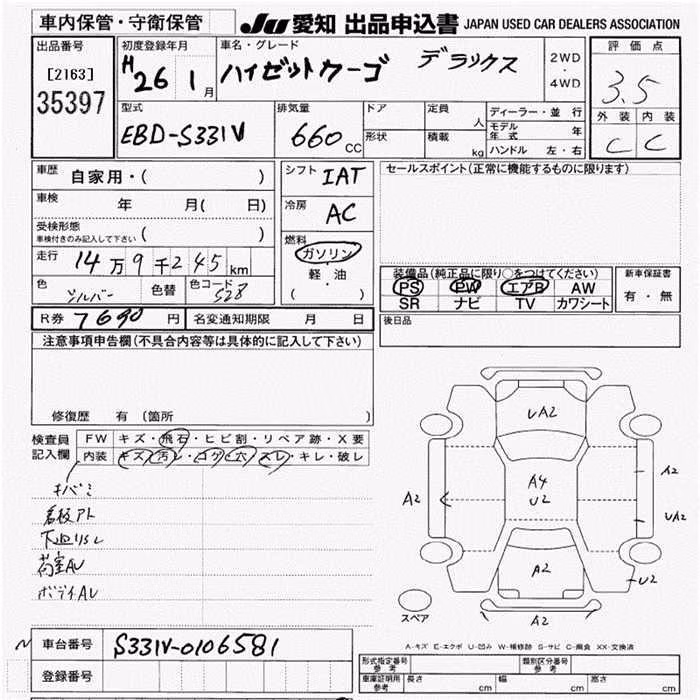 車内保管・守衛保管
JU 愛知 出品申込書 JAPAN USED CAR DEALERS ASSOCIATION
出品番号
[2163]
35397
初度登録年月
H 26 1 月
車名・グレード
ハイゼットカーゴ デラックス
2WD
・
4WD
評価点
3.5
外装 内装
C C
型式
EBD-S331V
排気量
660 CC
ドア
形状
定員 人
積載 kg
ディーラー・並行
モデル年式 年
ハンドル 左・右
車歴 自家用・( )
車検 年 月( 日)
受検形態
車検付きのみ記入して下さい ( )
走行 14万9千245km
色 シルバー 色替 色コード S28
シフト IAT
冷房 AC
燃料
ガソリン
軽・油
( )
セールスポイント(正常に機能するものに限ります)
装備品(純正品に限り○をつけてください)
PS PW エアB AW
SR ナビ TV カワシート
新車保証書
有・無
R券 7690 円 名変通知期限 月 日
後日品
注意事項申告欄(不具合内容等は具体的に記入して下さい)
修復歴 有 (箇所 )
検査員記入欄
FW キズ・飛石・ヒビ割・リペア跡・X要
内装 キズ・汚レ・コゲ・穴・スレ・キレ・破レ
キバミ
看板アト
下廻リSL
荷室AU
ボディAU
UA2
A4
U2
A2
A2
A2
UA2
U2
A2
スペア
A-キズ E-エクボ U-凹み W-補修跡 S-サビ C-腐食 XX-交換済
車台番号 S331V-0106581
登録番号
形式指定番号 参考
類別区分番号 参考
車庫証明用 参考 長さ cm 幅 cm 高さ cm